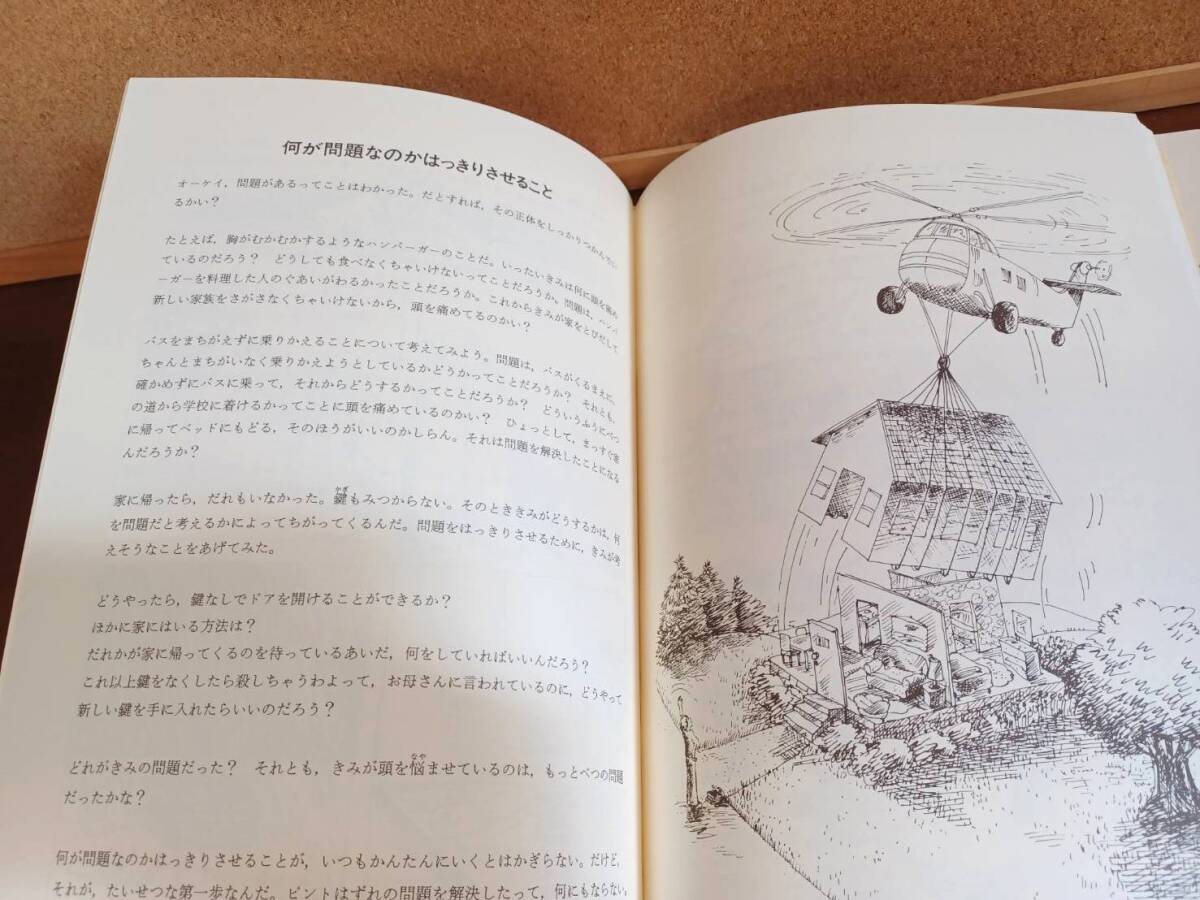 何が問題なのかはっきりさせること
オーケイ，問題があるってことはわかった。だとすれば，その正体をしっかりつかんでい
るかい？
たとえば，胸がむかむかするようなハンバーガーのことだ。いったいきみは何に頭を痛め
ているのだろう？　どうしても食べなくちゃいけないってことだろうか。問題は，ハンバ
ーガーを料理した人のぐあいがわるかったことだろうか。これからきみが家をとびだして
新しい家族をさがさなくちゃいけないから，頭を痛めてるのかい？
バスをまちがえずに乗りかえることについて考えてみよう。問題は，バスがくるまえに，
ちゃんとまちがいなく乗りかえようとしているかどうかってことだろうか？　それとも，
確かめずにバスに乗って，それからどうするかってことだろうか？　どういうふうにべつ
の道から学校に着けるかってことに頭を痛めているのかい？　ひょっとして，まっすぐ家
に帰ってベッドにもどる，そのほうがいいのかしらん。それは問題を解決したことになる
んだろうか？
家に帰ったら，だれもいなかった。鍵もみつからない。そのとききみがどうするかは，何
を問題だと考えるかによってちがってくるんだ。問題をはっきりさせるために，きみが考
えそうなことをあげてみた。
どうやったら，鍵なしでドアを開けることができるか？
ほかに家にはいる方法は？
だれかが家に帰ってくるのを待っているあいだ，何をしていればいいんだろう？
これ以上鍵をなくしたら殺しちゃうわよって，お母さんに言われているのに，どうやって
新しい鍵を手に入れたらいいのだろう？
どれがきみの問題だった？　それとも，きみが頭を悩ませているのは，もっとべつの問題
だったかな？
何が問題なのかはっきりさせることが，いつもかんたんにいくとはかぎらない。だけど，
それが，たいせつな第一歩なんだ。ピントはずれの問題を解決したって，何にもならない。